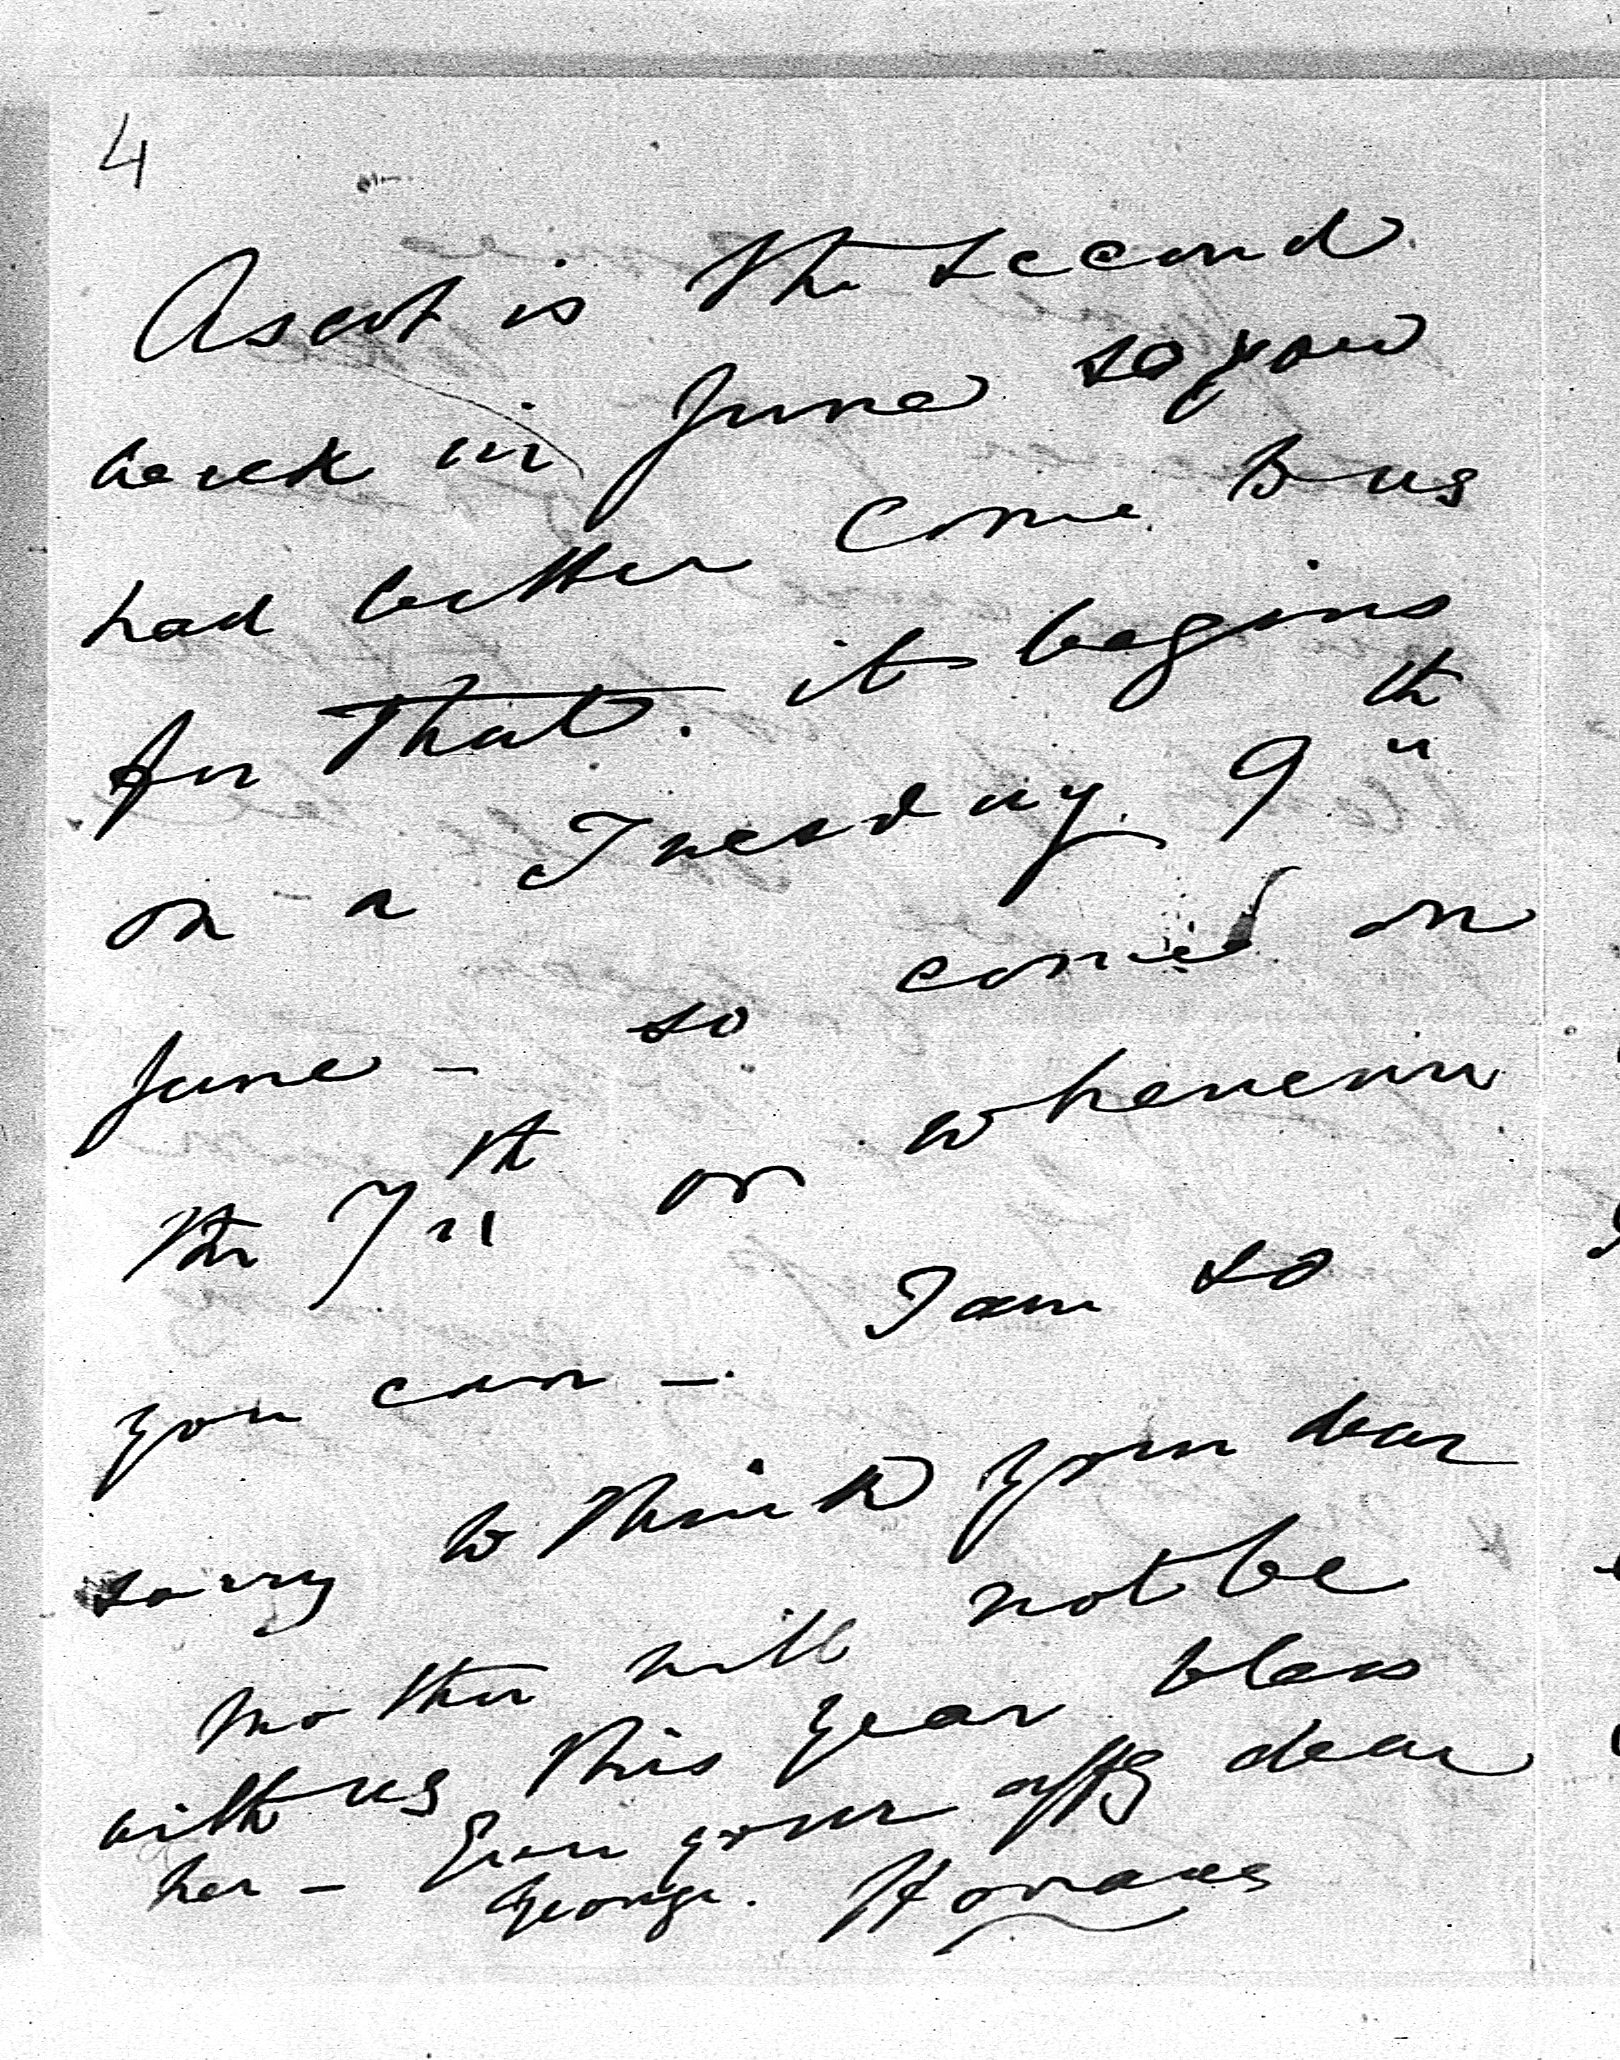 4
Ascot is the second
week in June so you
had better come to us
for that. it begins
on a Tuesday. 9th
June - so come on
the 7th or whenever
you can -. I am so
sorry to think your dear
mother will not be
with us this year bless
her - Ever your affg dear
George.